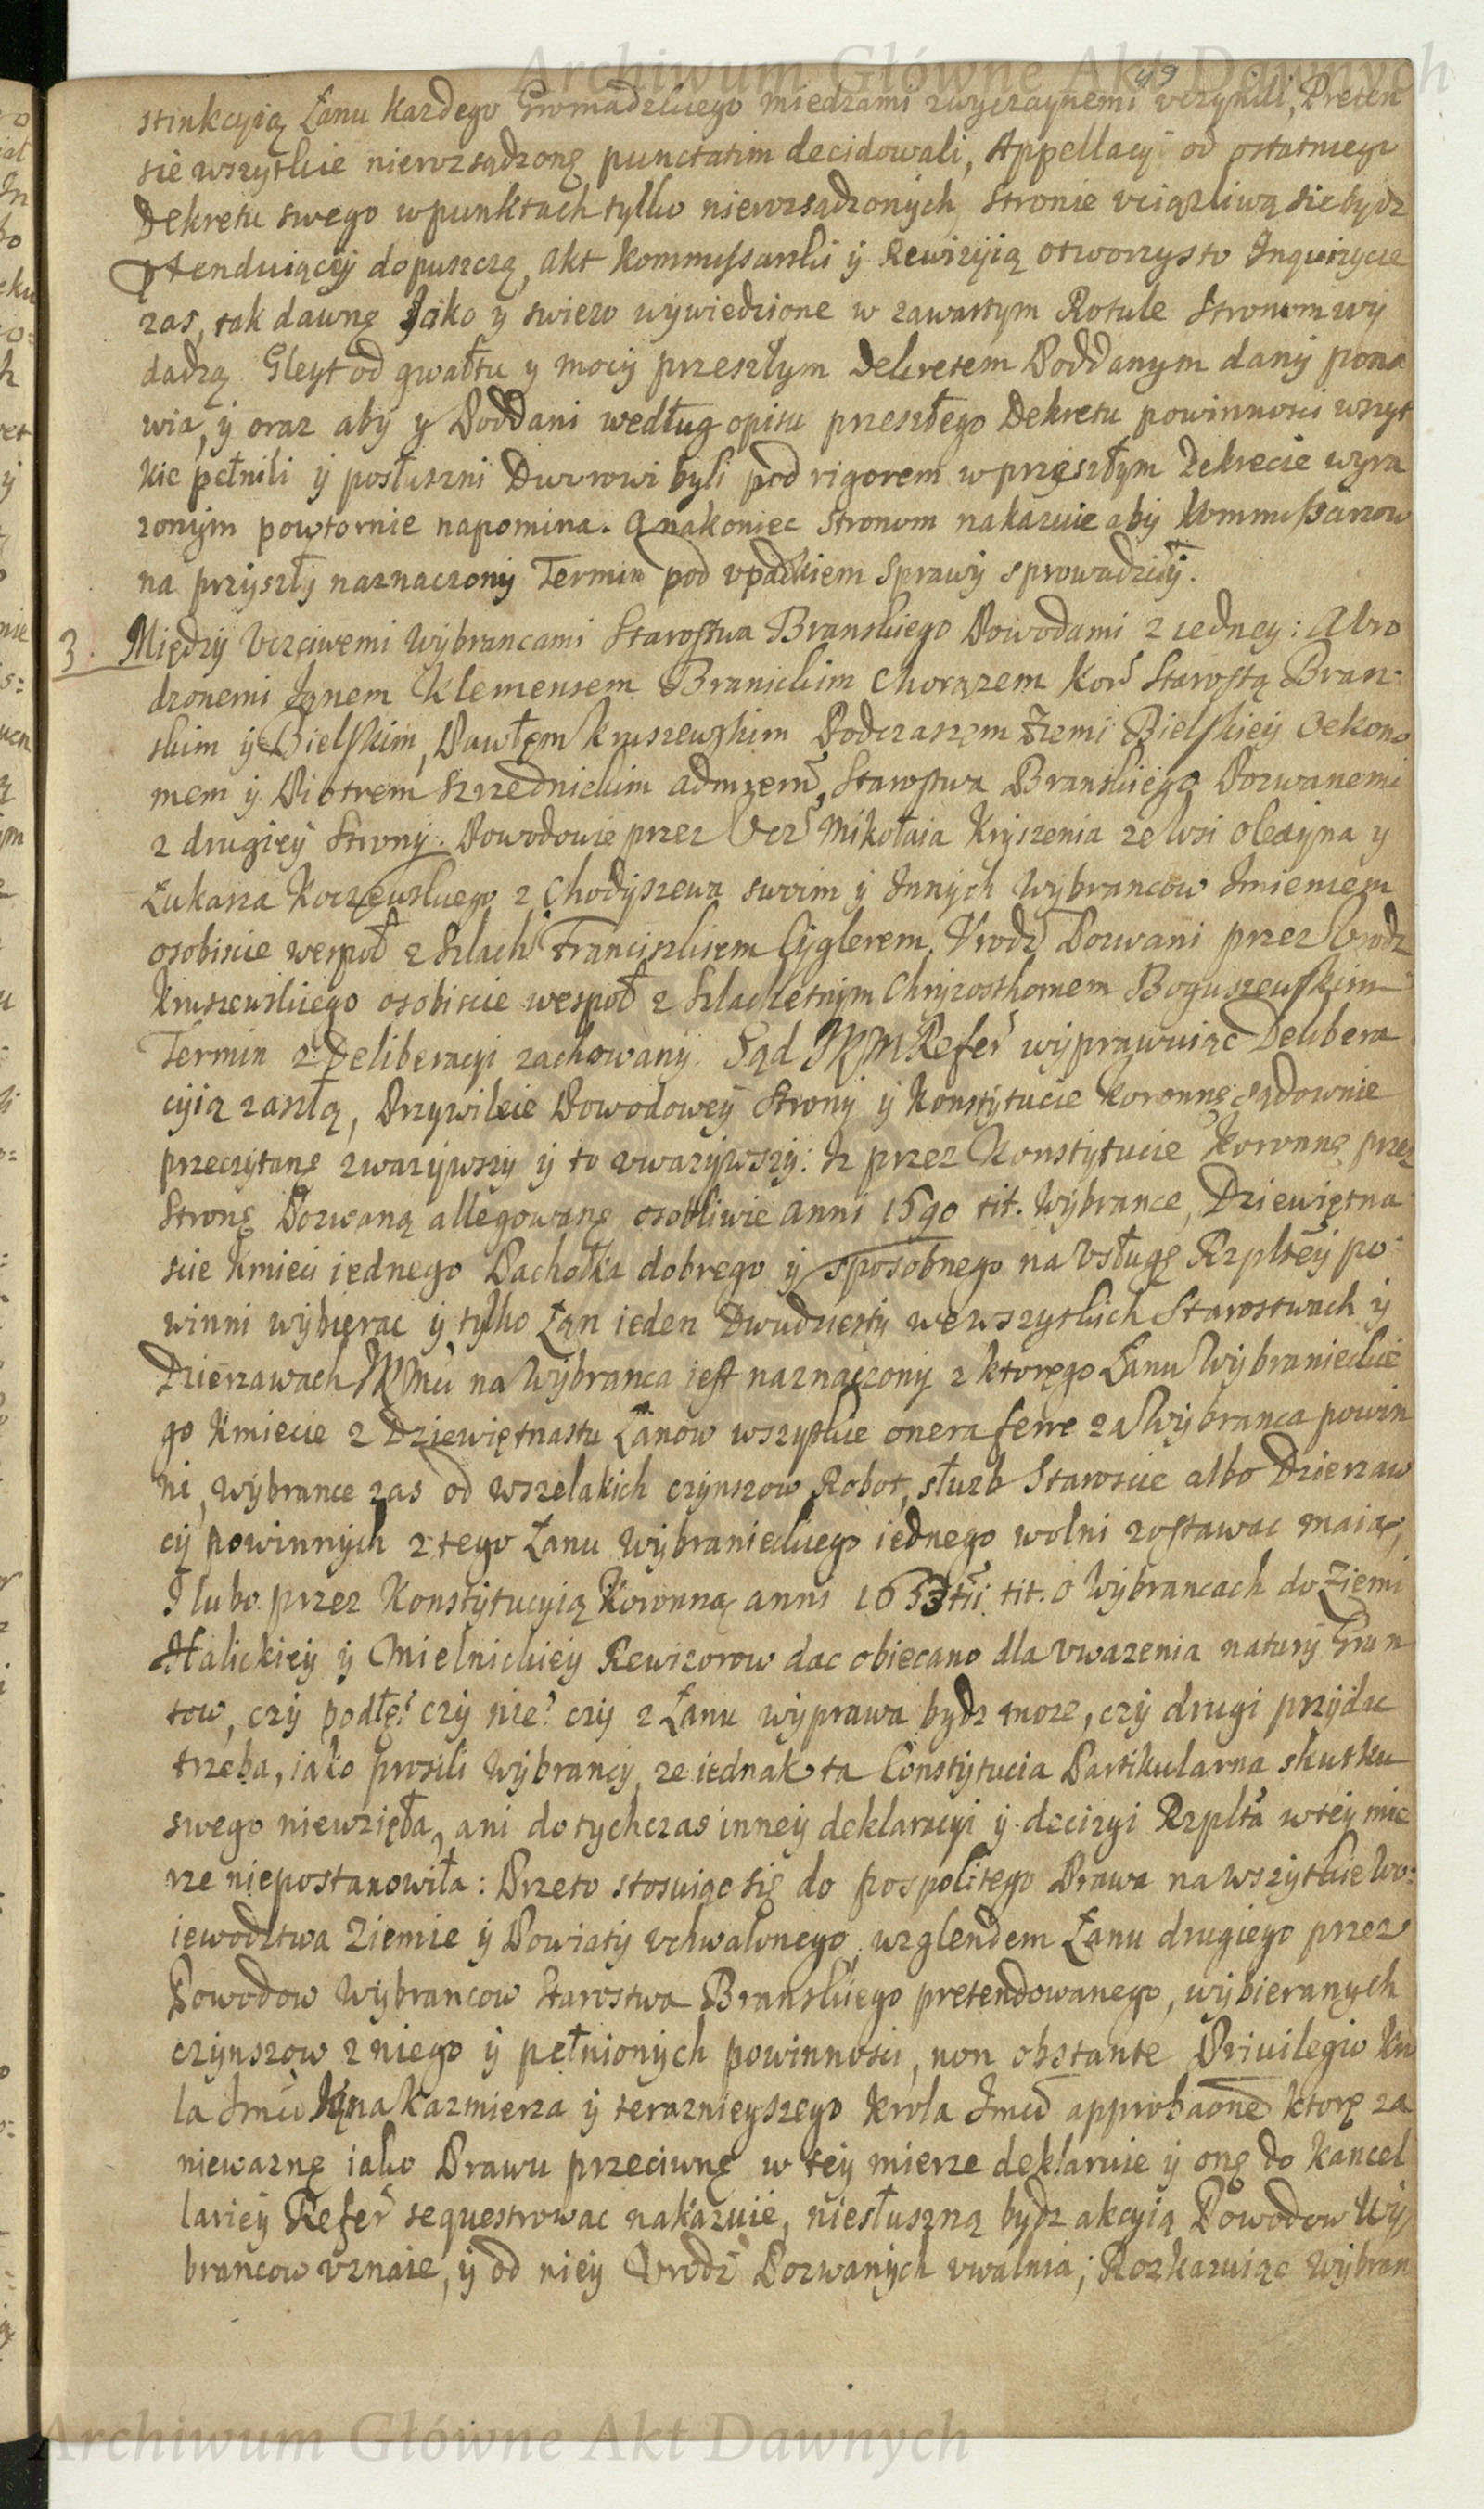 Archiwum Główne Akt Dawnych
49
stinkcyią Łanu kazdego Gromadzkiego miedzami zwyczaynemi vczynili, Preten
sie wszytkie nierozsądzonę punctatim decidowali, Appellacÿ od ostatniego
Dekretu swego w punktach tylko nierozsądzonych, stronie vciązliwą sie bydz
ptenduiącÿ dopuszczą, Akt kommissarski ÿ Rewizÿią otworzysto Inquizycie
zas, tak dawnę Jako ÿ swiezo wÿwiedzione w zawartym Rotule Stronom wÿ
dadzą Gleyt od gwałtu y mocÿ przeszłym Dekretem Poddanym danÿ pona
wia, ÿ oraz abÿ y Poddani według opisu przeszłego Dekretu powinnosci wszyt
kie pełnili ÿ posłuszni Dworowi byli pod rigorem w przeszłym Dekrecie wyra
zonÿm powtornie napomina. A nakoniec stronom nakazuie abÿ kommissarzow
na przÿszłÿ naznaczonÿ Termin pod vpadkiem Sprawÿ sprowadziłÿ.
3. Międzÿ Vczciwemi Wÿbrancami Starostwa Branskiego Powodami z iedney: A Vro
dzonemi Janem Klemensem Branickim Chorązem Kor Starostą Bran:
skim ÿ Bielskim, Pawłem kruszewskim Podczaszem Ziemi Bielskieÿ Oekono
mem ÿ Piotrem Szrzednickim Admrem, Starostwa Branskiego Pozwanemi
z drugieÿ Stronÿ. Powodowie przez Vcz Mikołaia Krÿszenia ze Wsi Olexÿna y
Łukasza Koczewskiego z Chodÿszewa swoim ÿ Innÿch Wÿbrancow Imieniem
osobiscie wespoł z Szlach Franciszkiem Cÿglerem. Vrodz Pozwani przez Vrodz
Kruszewskiego osobiscie wespoł z Szlachetnÿm Chrÿzosthomem Boguszewskim
Termin z Deliberacyi zachowanÿ. Sąd JKM Refer wÿprawuiąc Delibera
cÿią zaszłą, Przywileie Powodoweÿ Stronÿ ÿ Konstÿtucie koronnę sądownie
przeczÿtanę zwazÿwszÿ ÿ to vwazÿwszÿ: Iz przez Konstÿtucie Koronnę przez
Stronę Pozwaną allegowanę osobliwie anni 1590 tit. Wÿbrance, Dziewiętna
scie Kmieci iednego Pachołka dobrego ÿ sposobnego na Vsługę Rzpltéÿ po
winni wÿbierac ÿ tylko Łan ieden Dwudziestÿ we wszystkich Starostwach ÿ
Dzierzawach JKMci na Wÿbranca iest naznaczonÿ z ktorego Łanu Wÿbranieckie
go Kmiecie z Dziewiętnastu Łanow wszystkie onera ferre za Wÿbranca powin
ni, Wÿbrance zas od wszelakich czÿnszow, Robot, słuzb Staroscie albo Dzierzaw
cÿ powinnÿch z tego Łanu Wÿbranieckiego iednego wolni zostawac maią,
I lubo przez Konstÿtucÿią Koronną anni 1653tii tit. O Wÿbrancach do Ziemi
Halickieÿ ÿ Mielnickieÿ Rewizorow dac obiecano dla vwazenia naturÿ Grun
tow, czÿ podłę? czÿ nie? czÿ z Łanu wÿprawa bydz moze, czÿ drugi przÿdac
trzeba, iako prosili Wÿbrancÿ, ze iednak ta Constÿtucia Partikularna skutku
swego niewzięła, ani dotychczas inneÿ deklaracÿi ÿ decizyi Rzplta w teÿ mie
rze niepostanowiła: Przeto stosuiąc się do pospolitego Prawa na wszÿtkie Wo:
iewodztwa Ziemie ÿ Powiatÿ vchwalonego, wzglendem Łanu drugiego przez
Powodow Wÿbrancow Starostwa Branskiego pretendowanego, wÿbieranych
czÿnszow z niego ÿ pełnionÿch powinnosci, non obstante Privilegio Kro
la Jmci Jana Kazmierza ÿ teraznieÿszego Krola Jmci approbaone ktorę za
niewaznę iako Prawu przeciwnę w teÿ mierze deklaruie ÿ onę do kancel
larieÿ Refer sequestrowac nakazuie, niesłuszną bydz akcÿią Powodow Wÿ
brancow vznaie, ÿ od nieÿ Vrodz Pozwanÿch vwalnia; Rozkazuiąc Wÿbran
Archiwum Główne Akt Dawnych